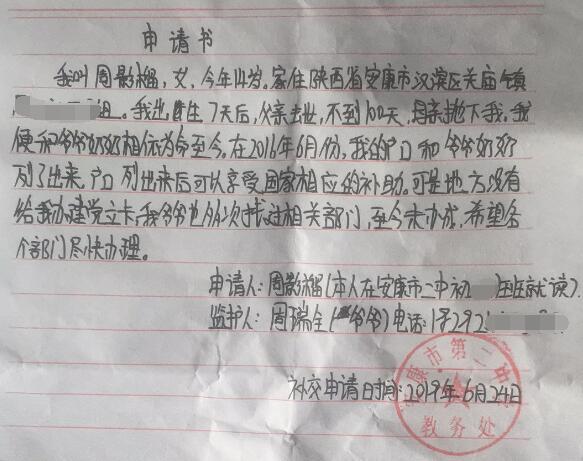 申请书
我叫周影稳,女,今年14岁。家住陕西省安康市汉滨区关庙镇
组。我出生7天后,父亲去世,不到100天,母亲抛下我,我
便和爷爷奶奶相依为命至今。在2016年6月份,我的户口和爷爷奶奶
列了出来,户口列出来后可以享受国家相应的补助。可是地方没有
给我办建党立卡,我爷爷也多次找过相关部门,至今未办成,希望各
个部门尽快办理。
申请人:周影(本人在安康市二中初 班就读)
监护人:周瑞全(爷爷)电话:18292
补交申请时间:2019年6月24日
安康市第二中学
教务处